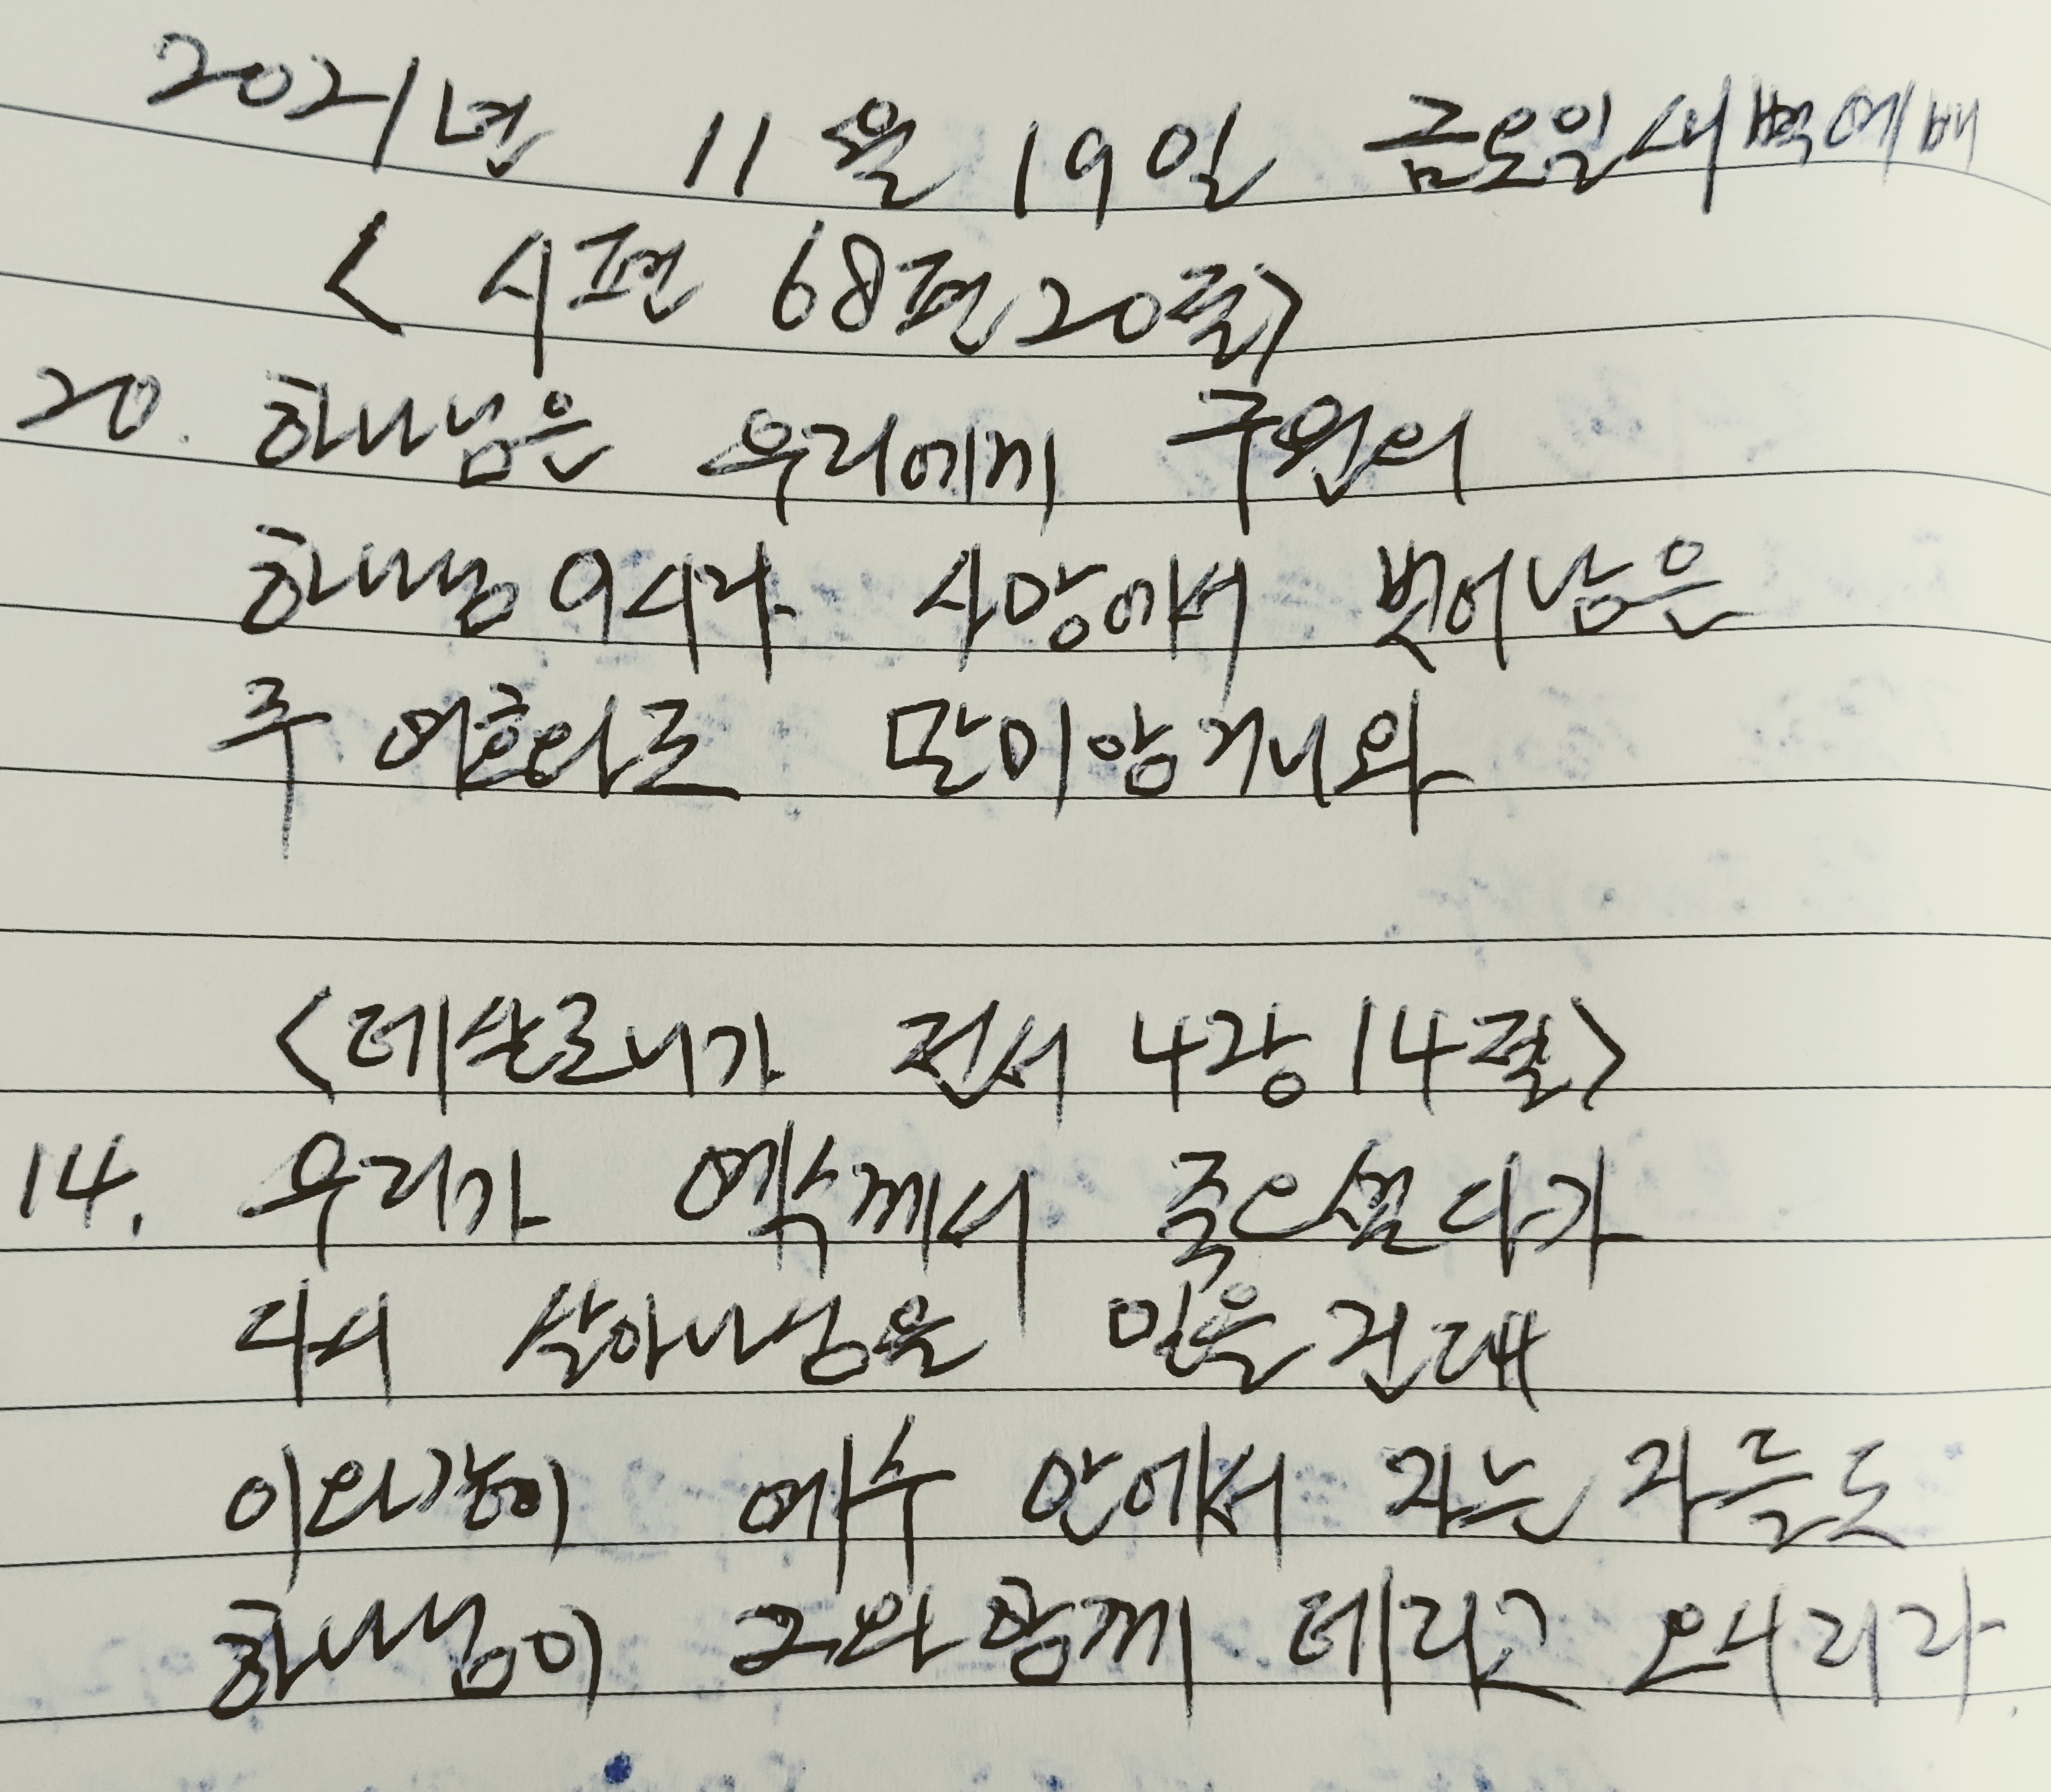 2021년 11월 19일 금요일새벽예배
< 시편 68편 20절>
20. 하나님은 우리에게 구원의
하나님이시라 사망에서 벗어남은
주 여호와로 말미암거니와
<데살로니가 전서 4장 14절>
14. 우리가 예수께서 죽으셨다가
다시 살아나심을 믿을진대
이와같이 예수 안에서 자는 자들도
하나님이 그와 함께 데리고 오시리라.